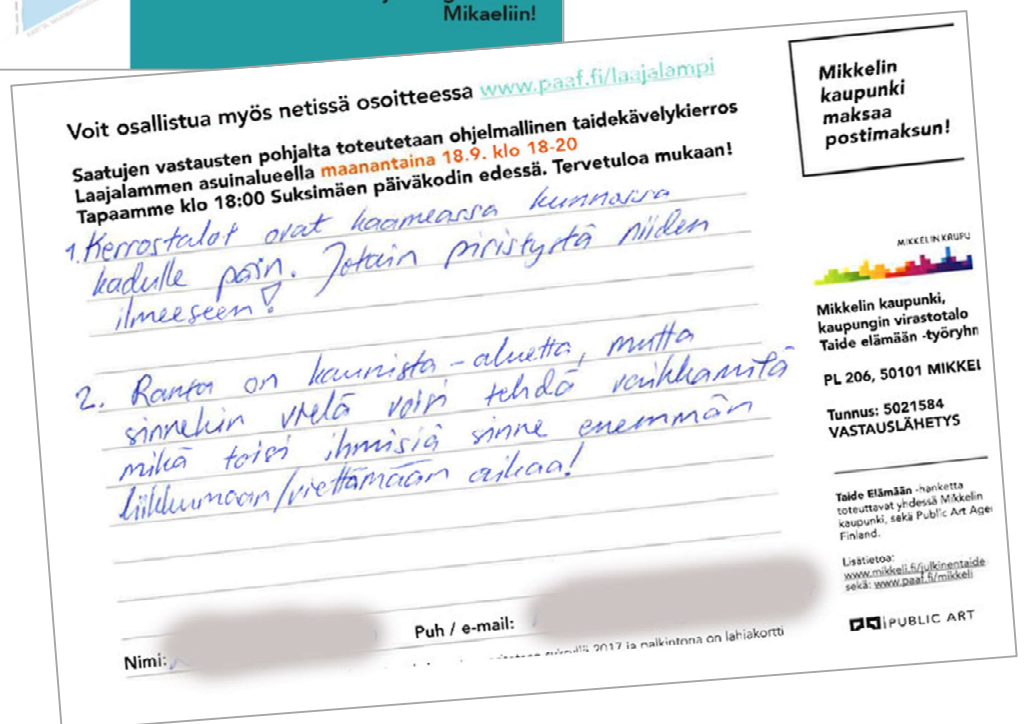 Mikaeliin!
Voit osallistua myös netissä osoitteessa www.paaf.fi/laajalampi
Saatujen vastausten pohjalta toteutetaan ohjelmallinen taidekävelykierros
Laajalammen asuinalueella maanantaina 18.9. klo 18-20
Tapaamme klo 18:00 Suksimäen päiväkodin edessä. Tervetuloa mukaan!
1. Kerrostalot ovat kaameassa kunnossa
kadulle päin. Jotain piristystä niiden
ilmeeseen!
2. Ranta on kaunista -aluetta, mutta
sinnekin vielä voisi tehdä vaikkamitä
mikä toisi ihmisiä sinne enemmän
liikkumaan/viettämään aikaa!
Nimi:
Puh / e-mail:
2017 ja palkintona on lahjakortti
Mikkelin
kaupunki
maksaa
postimaksun!
MIKKELIN KAUPU
Mikkelin kaupunki,
kaupungin virastotalo
Taide elämään -työryhm
PL 206, 50101 MIKKEL
Tunnus: 5021584
VASTAUSLÄHETYS
Taide Elämään -hanketta
toteuttavat yhdessä Mikkelin
kaupunki, sekä Public Art Agen
Finland.
Lisätietoa:
www.mikkeli.fi/julkinentaide
sekä: www.paaf.fi/mikkeli
PUBLIC ART